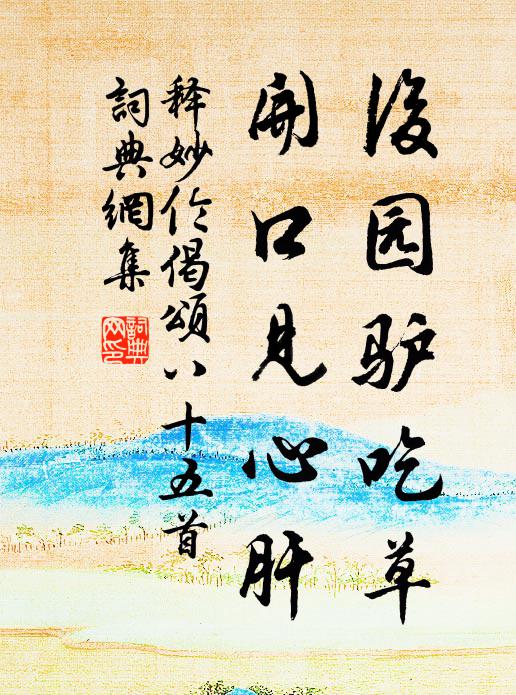 後园驴吃草
開口见心肝
释妙伦偈颂八十五首
詞典網集
詞典
网印